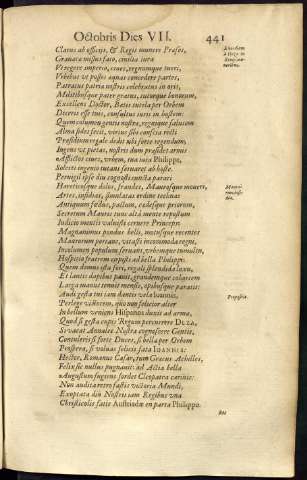 Octobris Dies VII. 441
Clarus ab officijs, & Regis munere Præses,
Granatæ missus fato, concilia iura
Vt regeret imperio, ciues, regnumque tueri,
Vrbibus ut posses aquas concedere partes,
Patratus patria nostris celebratus in oris,
Mellitibusque pater gratus, tutorque bonorum,
Excellens Doctor, Batis tutela per Orbem
Diceris esse tuis, consultus iuris in hostem:
Quem columen gentis nostræ, regnique salutem
Alma fides fecit, virtus sibi conscia recti
Præsidium regale dedit tibi forte regendum;
Ingens ut pietas, nostris dum præsides armis
Afflictos ciues, urbem, tua iura Philippe,
Soleri ingenio tucani seruaret ab hoste.
Peruigil ipse diu cognoscis cuncta parari
Hæreticosque dolos, fraudes, Maurosque mouere,
Artes, insidias, simulatas ordine technas
Antiquum fœdus, pactum, cædesque priorum,
Secretum Mauris tunc alta mente repostum
Iudicio monstri valuisti cernere Princeps:
Magnanimus pondus belli, motusque recentes
Maurorum portans, vitasti incommoda regni,
Incolumem populum seruans, urbemque tumultu,
Hospitio fratrem cepisti ad bella Philippi.
Quem domus ista fori, regali splendida luxu,
Et lautis dapibus pauit, grandemque cohortem
Larga manus tenuit mensis, opibusque paratis:
Auctis gesta tua iam dantis vela Ioannis,
Perlege victorem, quo non felicior alter
In bellum veniens Hispanos duxit ad arma,
Quod si gesta cupis Regum percurrere Dvza,
Si vacat Annales Nostræ euoluere Gentis,
Contuleris si forte Duces, si bella per Orbem
Pensiera, si voluas felicis fata Ioannis:
Hector, Romanus Cæsar, tum Graius Achilles,
Felix sic nullus pugnauit: ad Actia bella
Augustum fugiens fordet Cleopatra carinis:
Non audita retro fastis victoria Mundi,
Exoptata diu Nostris iam Regibus vna
Christicolis satis Austriadæ en parta Philippo.
Propositio.